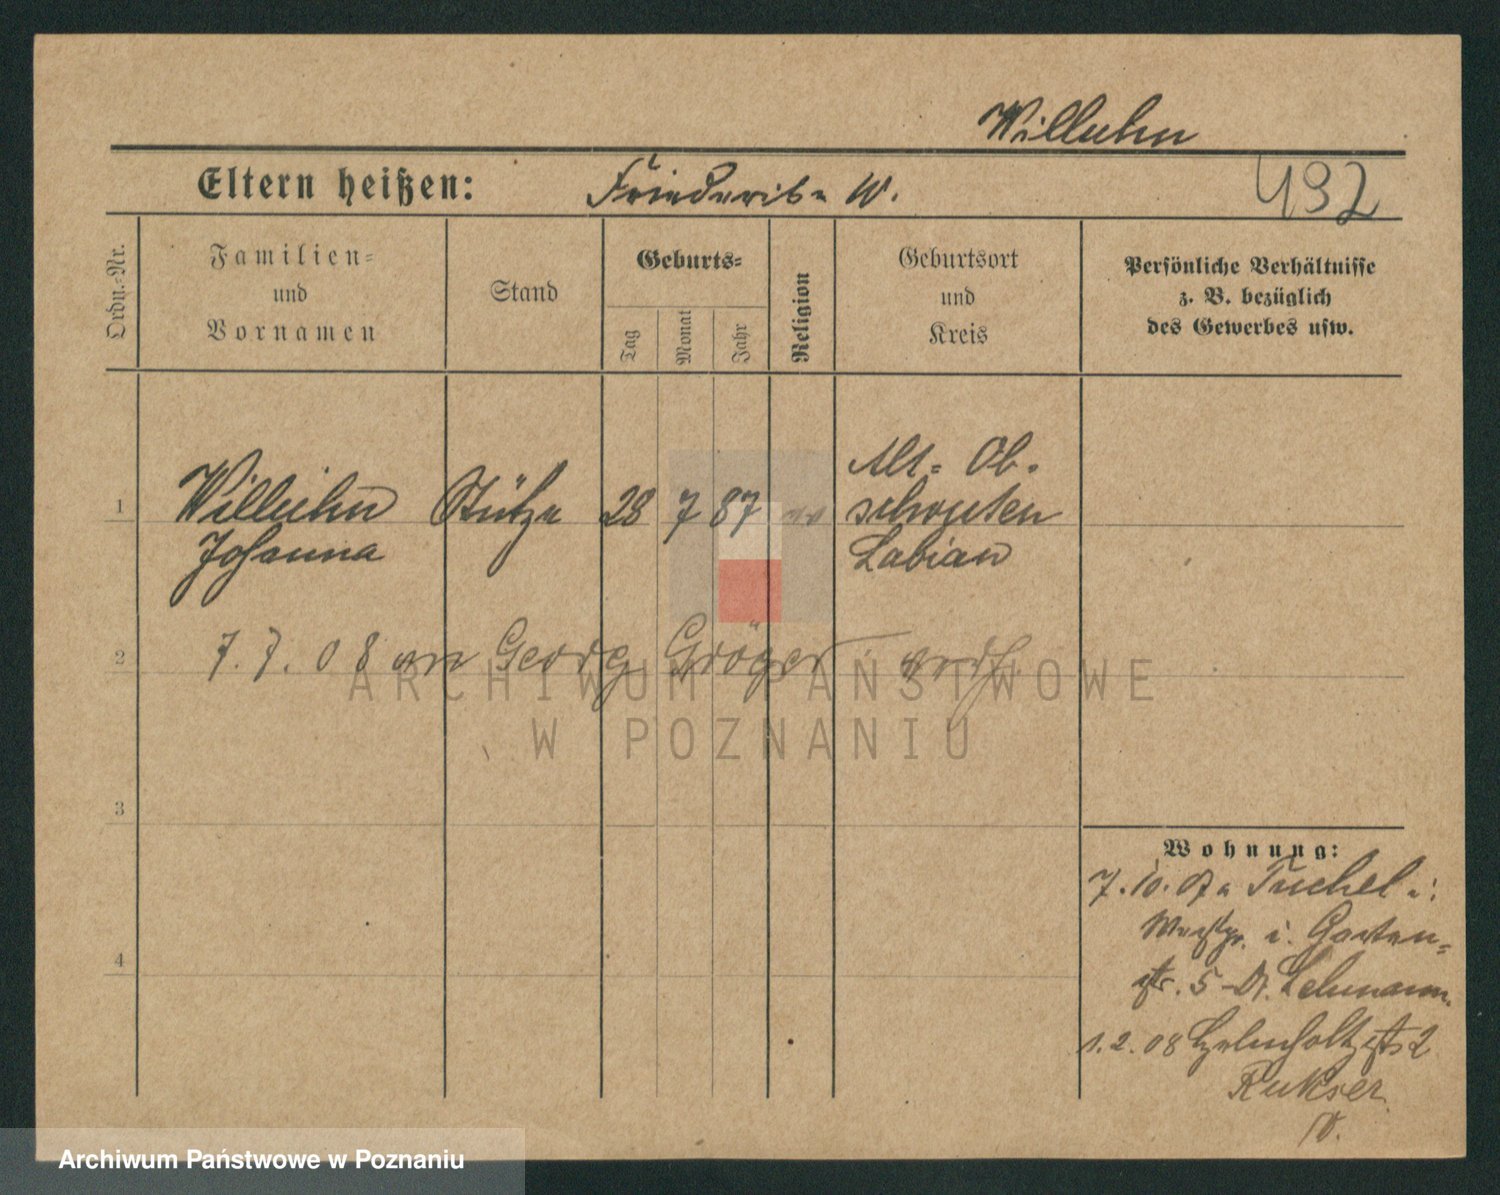 Willuhn
Eltern heißen: Friederike W.
432
Ordn.-Nr.
Familien-
und
Vornamen
Stand
Geburts-
Tag
Monat
Jahr
Religion
Geburtsort
und
Kreis
Persönliche Verhältnisse
z. B. bezüglich
des Gewerbes usw.
1
Willuhn Stütze 28 7 87
Johanna
Alt-
Labiau
2
7.7.08 an Georg Gröger verh.
ARCHIWUM PAŃSTWOWE
W POZNANIU
3
4
Wohnung:
7.10.07 Tuchel i.
Westpr. i. Garten-
str. 5 Lehmann.
1.2.08 Helmholtzstr 2
Rukser
Archiwum Państwowe w Poznaniu